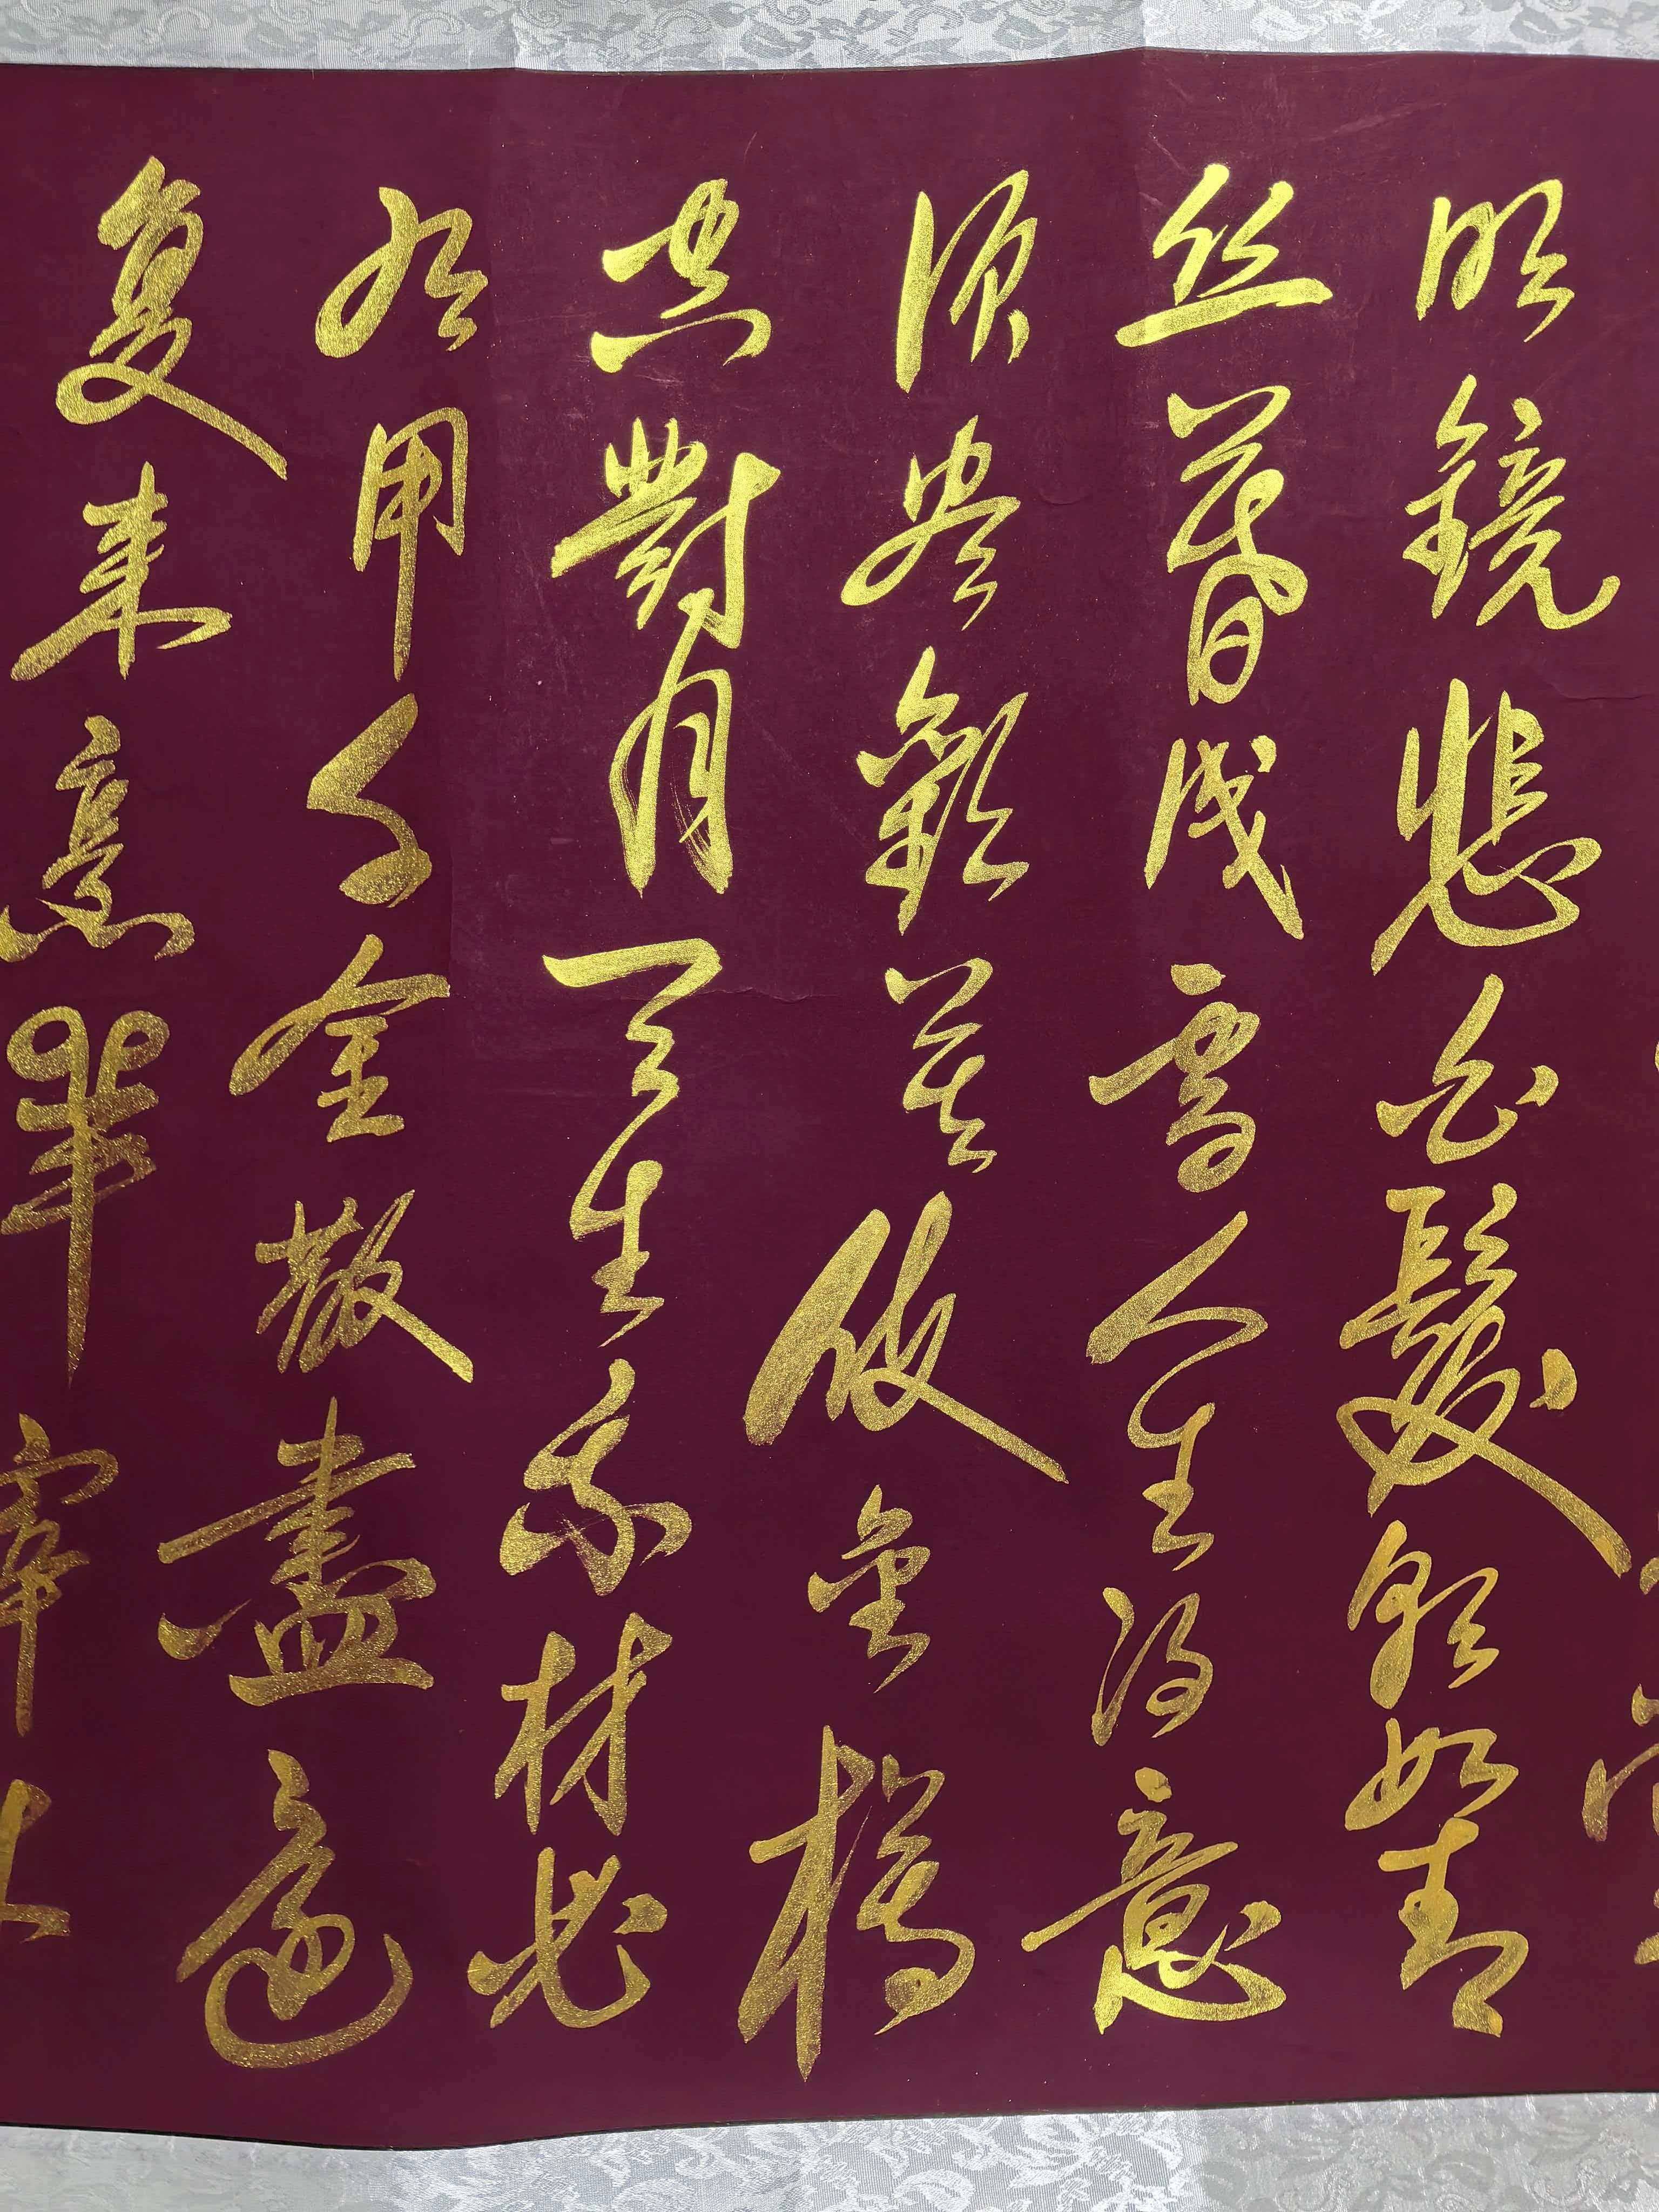 明鏡悲白髮朝如青
丝暮成雪人生得意
須尽歡莫使金樽
空對月天生我材必
有用千金散盡還
复来烹羊宰